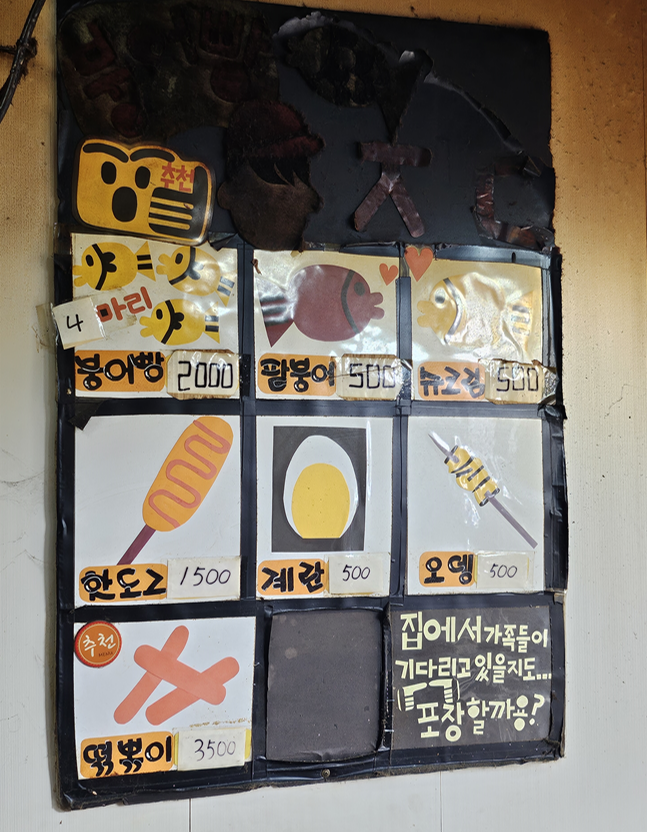 추천
4
마리
붕어빵 2000
팥붕어 500
슈크림 500
핫도그 1500
계란 500
오뎅 500
추천
떡볶이 3500
집에서 가족들이
기다리고 있을지도...
포장 할까용?